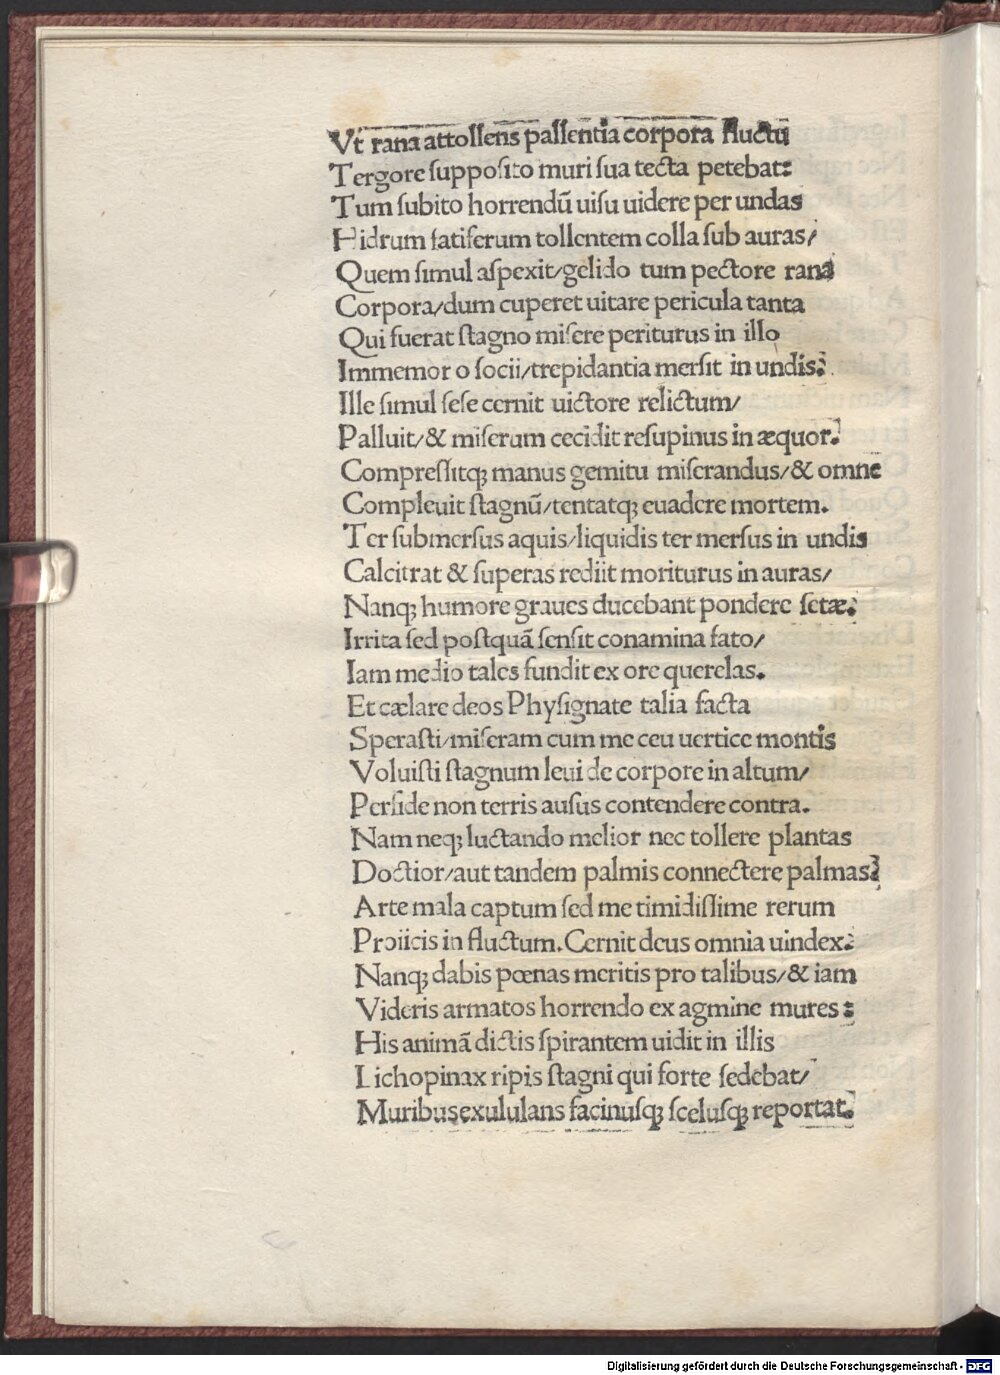 Vt rana attollens pallentia corpora fluctu
Tergore ſuppoſito muri ſua tecta petebat:
Tum ſubito horrendū uiſu uidere per undas
Hidrum fatiferum tollentem colla ſub auras/
Quem ſimul aſpexit/gelido tum pectore rana
Corpora/dum cuperet uitare pericula tanta
Qui fuerat ſtagno miſere periturus in illo
Immemor o ſocii/trepidantia merſit in undis:
Ille ſimul ſeſe cernit uictore relictum/
Palluit/& miſerum cecidit reſupinus in æquor.
Compreſſitq; manus gemitu miſerandus/& omne
Compleuit ſtagnū/tentatq; euadere mortem.
Ter ſubmerſus aquis/liquidis ter merſus in undis
Calcitrat & ſuperas rediit moriturus in auras/
Nanq; humore graues ducebant pondere ſetæ:
Irrita ſed poſtquā ſenſit conamina fato/
Iam medio tales fundit ex ore querelas.
Et cælare deos Phyſignate talia facta
Speraſti/miſeram cum me ceu uertice montis
Voluiſti ſtagnum leui de corpore in altum/
Perfide non terris auſus contendere contra.
Nam neq; luctando melior nec tollere plantas
Doctior/aut tandem palmis connectere palmas:
Arte mala captum ſed me timidiſſime rerum
Proiicis in fluctum. Cernit deus omnia uindex:
Nanq; dabis pœnas meritis pro talibus/& iam
Videris armatos horrendo ex agmine mures:
His animā dictis ſpirantem uidit in illis
Lichopinax ripis ſtagni qui forte ſedebat/
Muribus exululans facinuſq; ſceluſq; reportat.
Digitalisierung gefördert durch die Deutsche Forschungsgemeinschaft - DFG